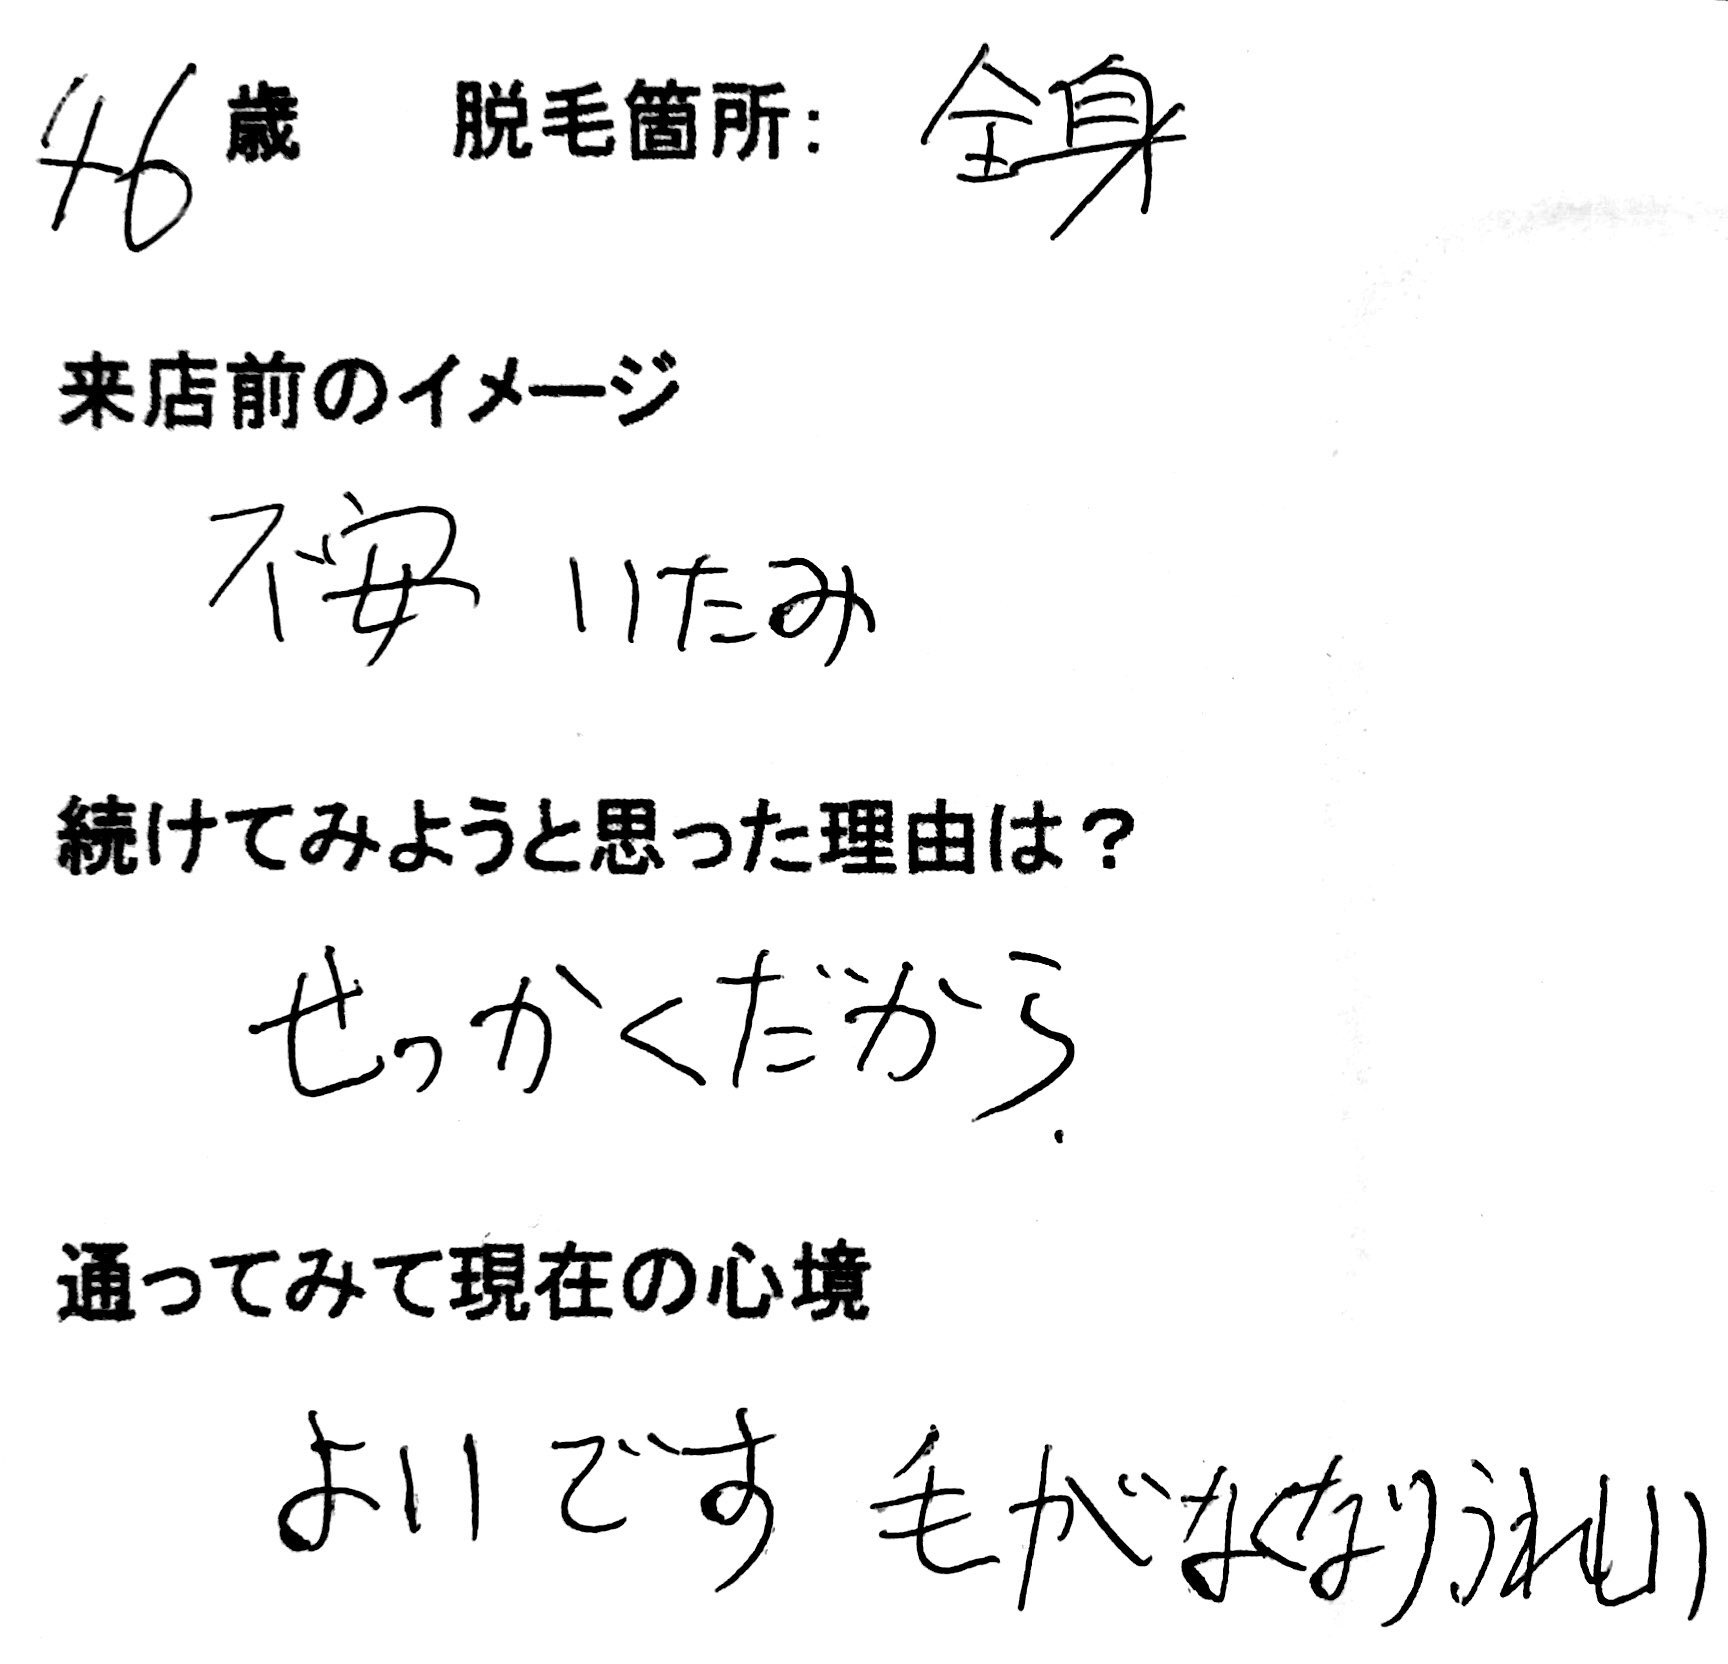 46歳 脱毛箇所: 全身
来店前のイメージ
不安 いたみ
続けてみようと思った理由は?
せっかくだから.
通ってみて現在の心境
よいです 毛がなくなりうれしい